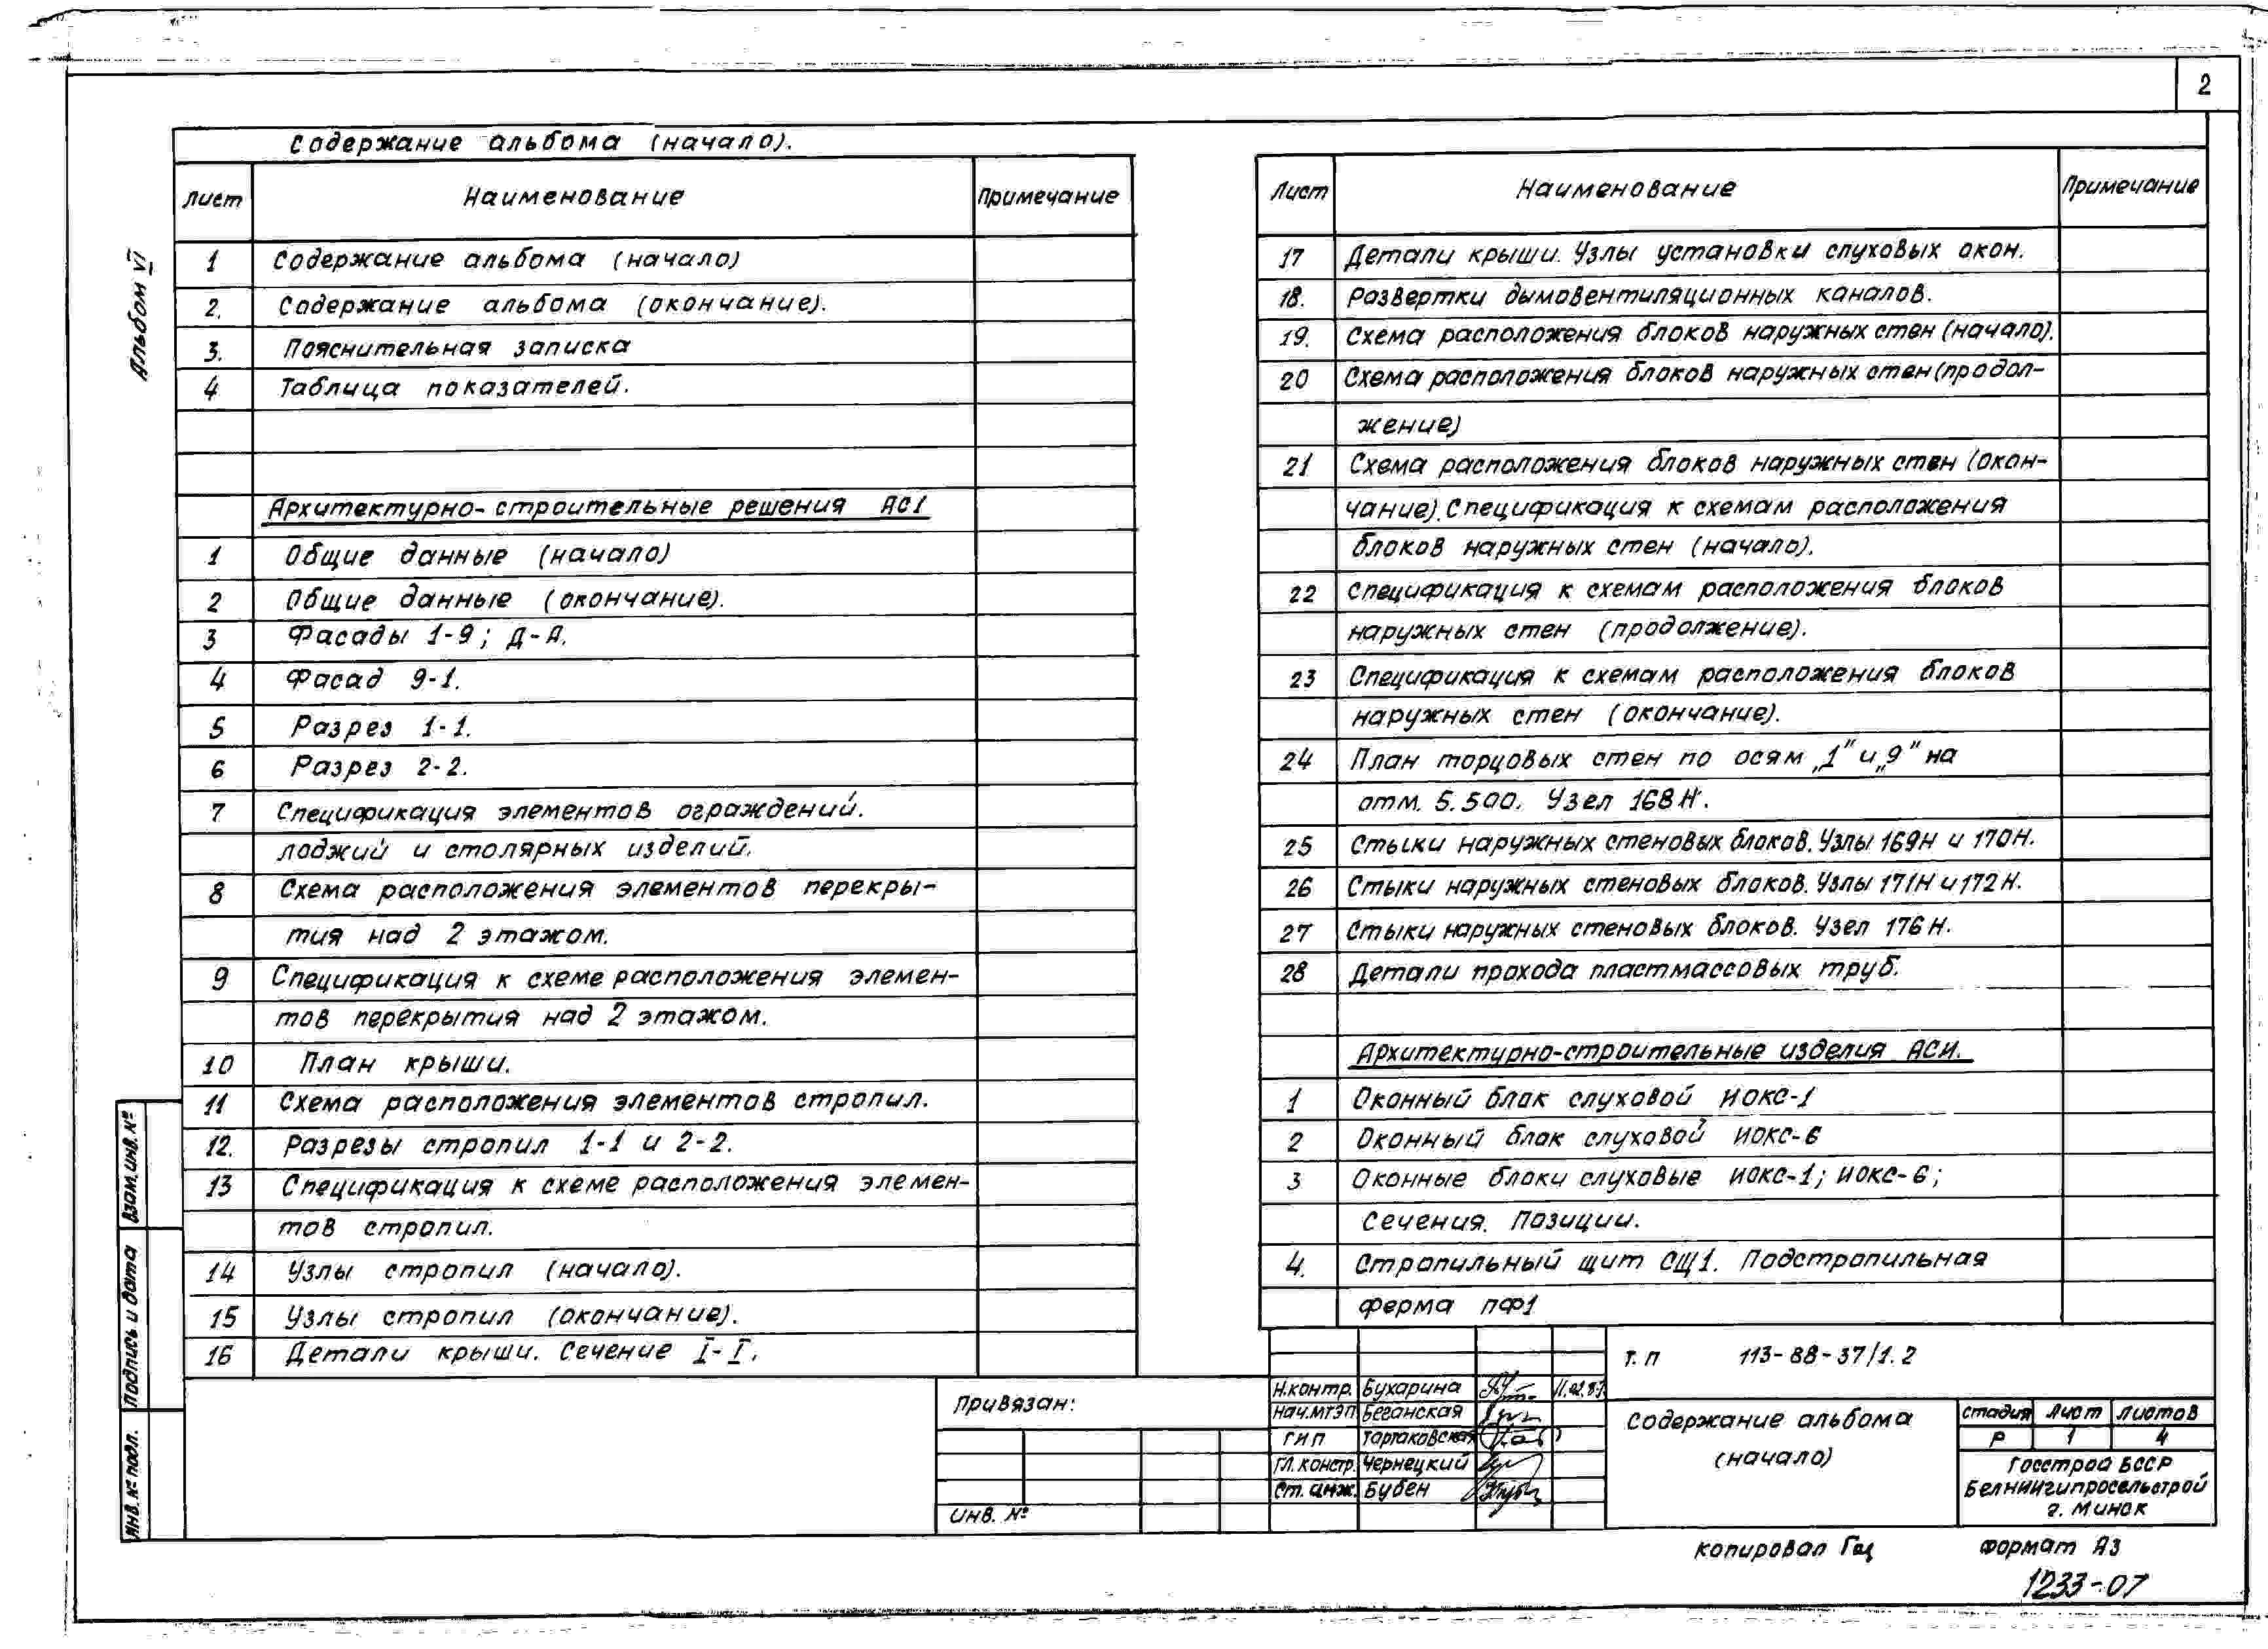 2
Альбом VI
Содержание альбома (начало).
Лист Наименование Примечание
1 Содержание альбома (начало)
2. Содержание альбома (окончание).
3. Пояснительная записка
4 Таблица показателей.
Архитектурно-строительные решения АС1
1 Общие данные (начало)
2 Общие данные (окончание).
3 Фасады 1-9; Д-А.
4 Фасад 9-1.
5 Разрез 1-1.
6 Разрез 2-2.
7 Спецификация элементов ограждений.
лоджий и столярных изделий.
8 Схема расположения элементов перекры-
тия над 2 этажом.
9 Спецификация к схеме расположения элемен-
тов перекрытия над 2 этажом.
10 План крыши.
11 Схема расположения элементов стропил.
12. Разрезы стропил 1-1 и 2-2.
13 Спецификация к схеме расположения элемен-
тов стропил.
14 Узлы стропил (начало).
15 Узлы стропил (окончание).
16 Детали крыши. Сечение I-I.
Лист Наименование Примечание
17 Детали крыши. Узлы установки слуховых окон.
18. Развертки дымовентиляционных каналов.
19. Схема расположения блоков наружных стен (начало).
20 Схема расположения блоков наружных стен (продол-
жение)
21 Схема расположения блоков наружных стен (окон-
чание). Спецификация к схемам расположения
блоков наружных стен (начало).
22 Спецификация к схемам расположения блоков
наружных стен (продолжение).
23 Спецификация к схемам расположения блоков
наружных стен (окончание).
24 План торцовых стен по осям „1" и „9" на
отм. 5.500. Узел 168Н.
25 Стыки наружных стеновых блоков. Узлы 169Н и 170Н.
26 Стыки наружных стеновых блоков. Узлы 171Н и 172Н.
27 Стыки наружных стеновых блоков. Узел 176Н.
28 Детали прохода пластмассовых труб.
Архитектурно-строительные изделия АСИ.
1 Оконный блок слуховой ИОКС-1
2 Оконный блок слуховой ИОКС-6
3 Оконные блоки слуховые ИОКС-1; ИОКС-6;
Сечения. Позиции.
4. Стропильный щит СЩ1. Подстропильная
ферма ПФ1
Взам. инв. №
Подпись и дата
Инв. № подл.
Привязан:
Инв. №
Н.контр. Бухарина
Нач.МТЭП Беганская
ГИП Тартаковская
Гл. констр. Чернецкий
Ст. инж. Бубен
Т.П 113-88-37/1.2
Содержание альбома
(начало)
Стадия Лист Листов
Р 1 4
Госстрой БССР
Белниигипросельстрой
г. Минск
Копировал
Формат А3
1233-07